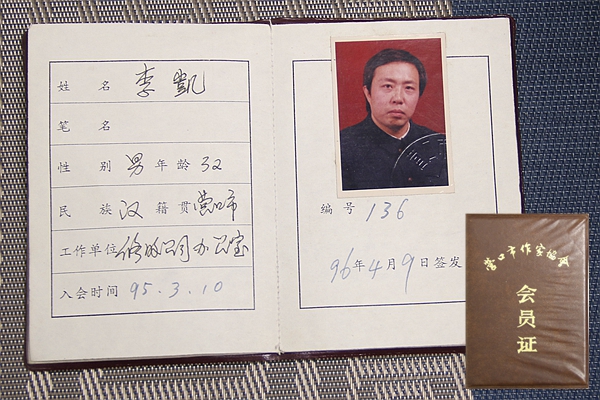 姓名 李凯
笔名
性别 男 年龄 32
民族 汉 籍贯 营口市
工作单位 公司办公室
入会时间 95.3.10
编号 136
96年4月9日签发
营口市作家协会
会员证